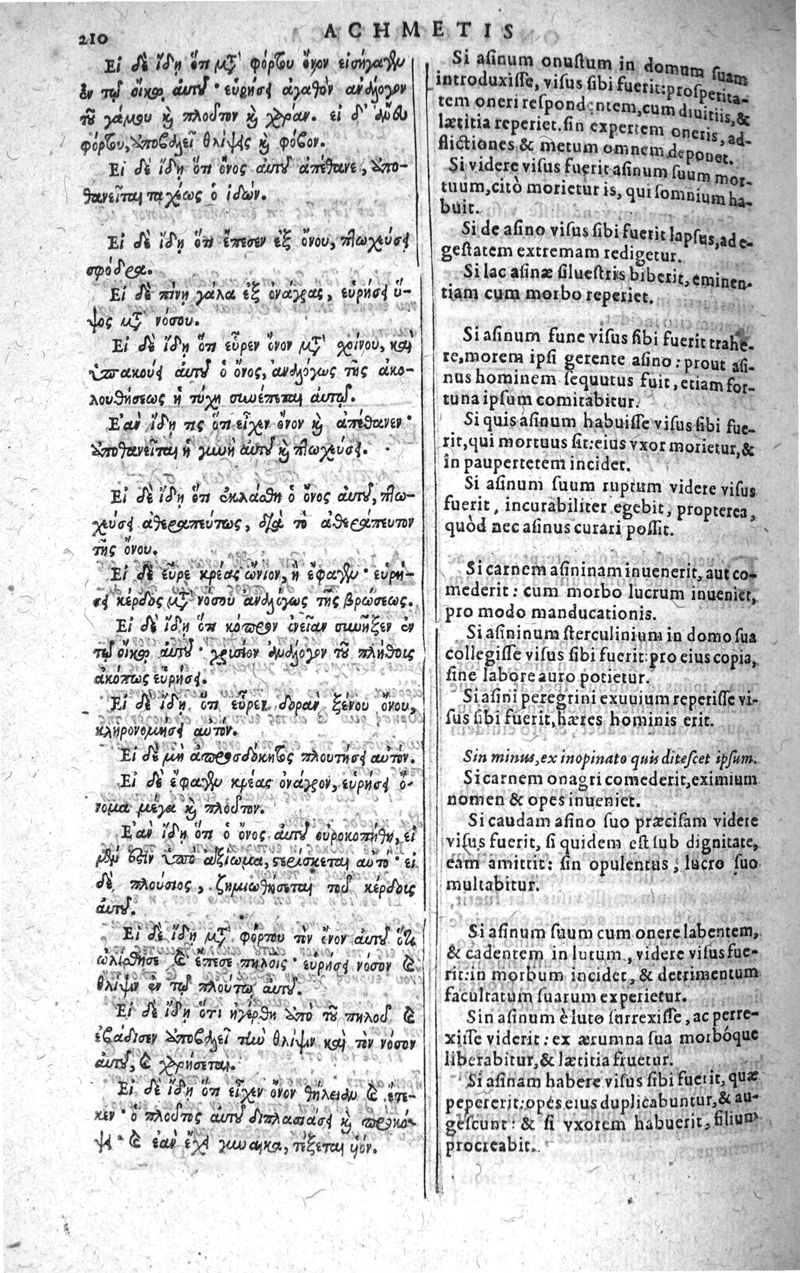 210
ACHMETIS
Εἰ δὲ ἴδῃ ὅτι μετὰ φόρτου ὄνον εἰσήγαγεν
ἐν τῷ οἴκῳ αὐτοῦ· εὑρήσει ἀγαθὸν ἀνάλογον
τοῦ γόμου καὶ πλοῦτον καὶ χαράν. εἰ δ' ἄνευ
φόρτου, ἀποβαλεῖ θλίψεις καὶ φόβον.
Εἰ δὲ ἴδῃ ὅτι ὄνος αὐτοῦ ἀπέθανε, ἀπο-
θανεῖται ταχέως ὁ ἰδών.
Εἰ δὲ ἴδῃ ὅτι ἔπεσεν ἐξ ὄνου, πτωχεύσει
σφόδρα.
Εἰ δὲ πίνῃ γάλα ἐξ ὀνάγρας, εὑρήσει ὕ-
ψος μετὰ νόσου.
Εἰ δὲ ἴδῃ ὅτι εὗρεν ὄνον μετὰ χοίνου, καὶ
ὑπακούει αὐτῷ ὁ ὄνος, ἀναλόγως τῆς ἀκο-
λουθήσεως ἡ τύχη συνέπεται αὐτῷ.
Ἐάν ἴδῃ τις ὅτι εἶχεν ὄνον καὶ ἀπέθανεν·
ἀποθανεῖται ἡ γυνὴ αὐτοῦ καὶ πτωχεύσει.
Εἰ δὲ ἴδῃ ὅτι ἐκλάσθη ὁ ὄνος αὐτοῦ, πτω-
χεύσει ἀθεραπεύτως, διὰ τὸ ἀθεράπευτον
τῆς ὄνου.
Εἰ δὲ εὗρε κρέας ὤνιον, ἢ ἔφαγεν· εὑρή-
σει κέρδος μετὰ νόσου ἀναλόγως τῆς βρώσεως.
Εἰ δὲ ἴδῃ ὅτι κόπρον ὀνείαν συνῆξεν ἐν
τῷ οἴκῳ αὐτοῦ· χρυσίον ἀνάλογον τοῦ πλήθους
ἀκόπως εὑρήσει.
Εἰ δὲ ἴδῃ ὅτι εὗρεν δορὰν ξένου ὄνου,
κληρονομήσει αὐτόν.
Εἰ δὲ μὴ ἀπροσδοκήτως πλουτήσει αὐτόν.
Εἰ δὲ ἔφαγεν κρέας ὀνάγρον, εὑρήσει ὄ-
νομα μέγα καὶ πλοῦτον.
Ἐάν ἴδῃ ὅτι ὁ ὄνος αὐτοῦ οὐροκοπήθη, εἰ
μέν ἐστιν ὑπὸ ἀξίωμα, στερίσκεται αὐτό· εἰ
δὲ πλούσιος, ζημιωθήσεται τοῦ κέρδους
αὐτοῦ.
Εἰ δὲ ἴδῃ μετὰ φόρτου τὸν ὄνον αὐτοῦ ὅτι
ὠλίσθησε καὶ ἔπεσε πηλοῖς· εὑρήσει νόσον καὶ
θλίψιν ἐν τῷ πλούτῳ αὐτοῦ.
Εἰ δὲ ἴδῃ ὅτι ἠγέρθη ἀπὸ τοῦ πηλοῦ καὶ
ἐβάδισεν ἀποβαλεῖ τὴν θλίψιν καὶ τὸν νόσον
αὐτοῦ, καὶ χαρήσεται.
Εἰ δὲ ἴδῃ ὅτι εἶχεν ὄνον θήλειαν καὶ ἔτε-
κεν· ὁ πλοῦτος αὐτοῦ διπλασιάσει καὶ προκό-
ψει· καὶ ἐὰν ἔχῃ γυναῖκα, τέξεται υἱόν.
Si asinum onustum in domum suam
introduxisse, visus sibi fuerit: prosperita-
tem oneri respondentem, cum diuitiis, &
lætitia reperiet. sin expertem oneris, ad-
flictiones & metum omnem deponet.
Si videre visus fuerit asinum suum mor-
tuum, citò morietur is, qui somnium ha-
buit.
Si de asino visus sibi fuerit lapsus, ad e-
gestatem extremam redigetur.
Si lac asinæ siluestris biberit, eminen-
tiam cum morbo reperiet.
Si asinum fune visus sibi fuerit trahe-
re, morem ipsi gerente asino: prout asi-
nus hominem sequutus fuit, etiam for-
tuna ipsum comitabitur.
Si quis asinum habuisse visus sibi fue-
rit, qui mortuus sit: eius vxor morietur, &
in paupertetem incidet.
Si asinum suum ruptum videre visus
fuerit, incurabiliter egebit, propterea,
quòd nec asinus curari possit.
Si carnem asininam inuenerit, aut co-
mederit: cum morbo lucrum inueniet,
pro modo manducationis.
Si asininum sterculinium in domo sua
collegisse visus sibi fuerit: pro eius copia,
sine labore auro potietur.
Si asini peregrini exuuium reperisse vi-
sus sibi fuerit, hæres hominis erit.
Sin minus, ex inopinato quis ditescet ipsum.
Si carnem onagri comederit, eximium
nomen & opes inueniet.
Si caudam asino suo præcisam videre
visus fuerit, si quidem est sub dignitate,
eam amittit: sin opulentus, lucro suo
multabitur.
Si asinum suum cum onere labentem,
& cadentem in lutum, videre visus fue-
rit: in morbum incidet, & detrimentum
facultatum suarum experietur.
Sin asinum è luto surrexisse, ac perre-
xisse viderit: ex ærumna sua morbóque
liberabitur, & lætitia fruetur.
Si asinam habere visus sibi fuerit, quæ
pepererit: opes eius duplicabuntur, & au-
gescunt: & si vxorem habuerit, filium
procreabit.